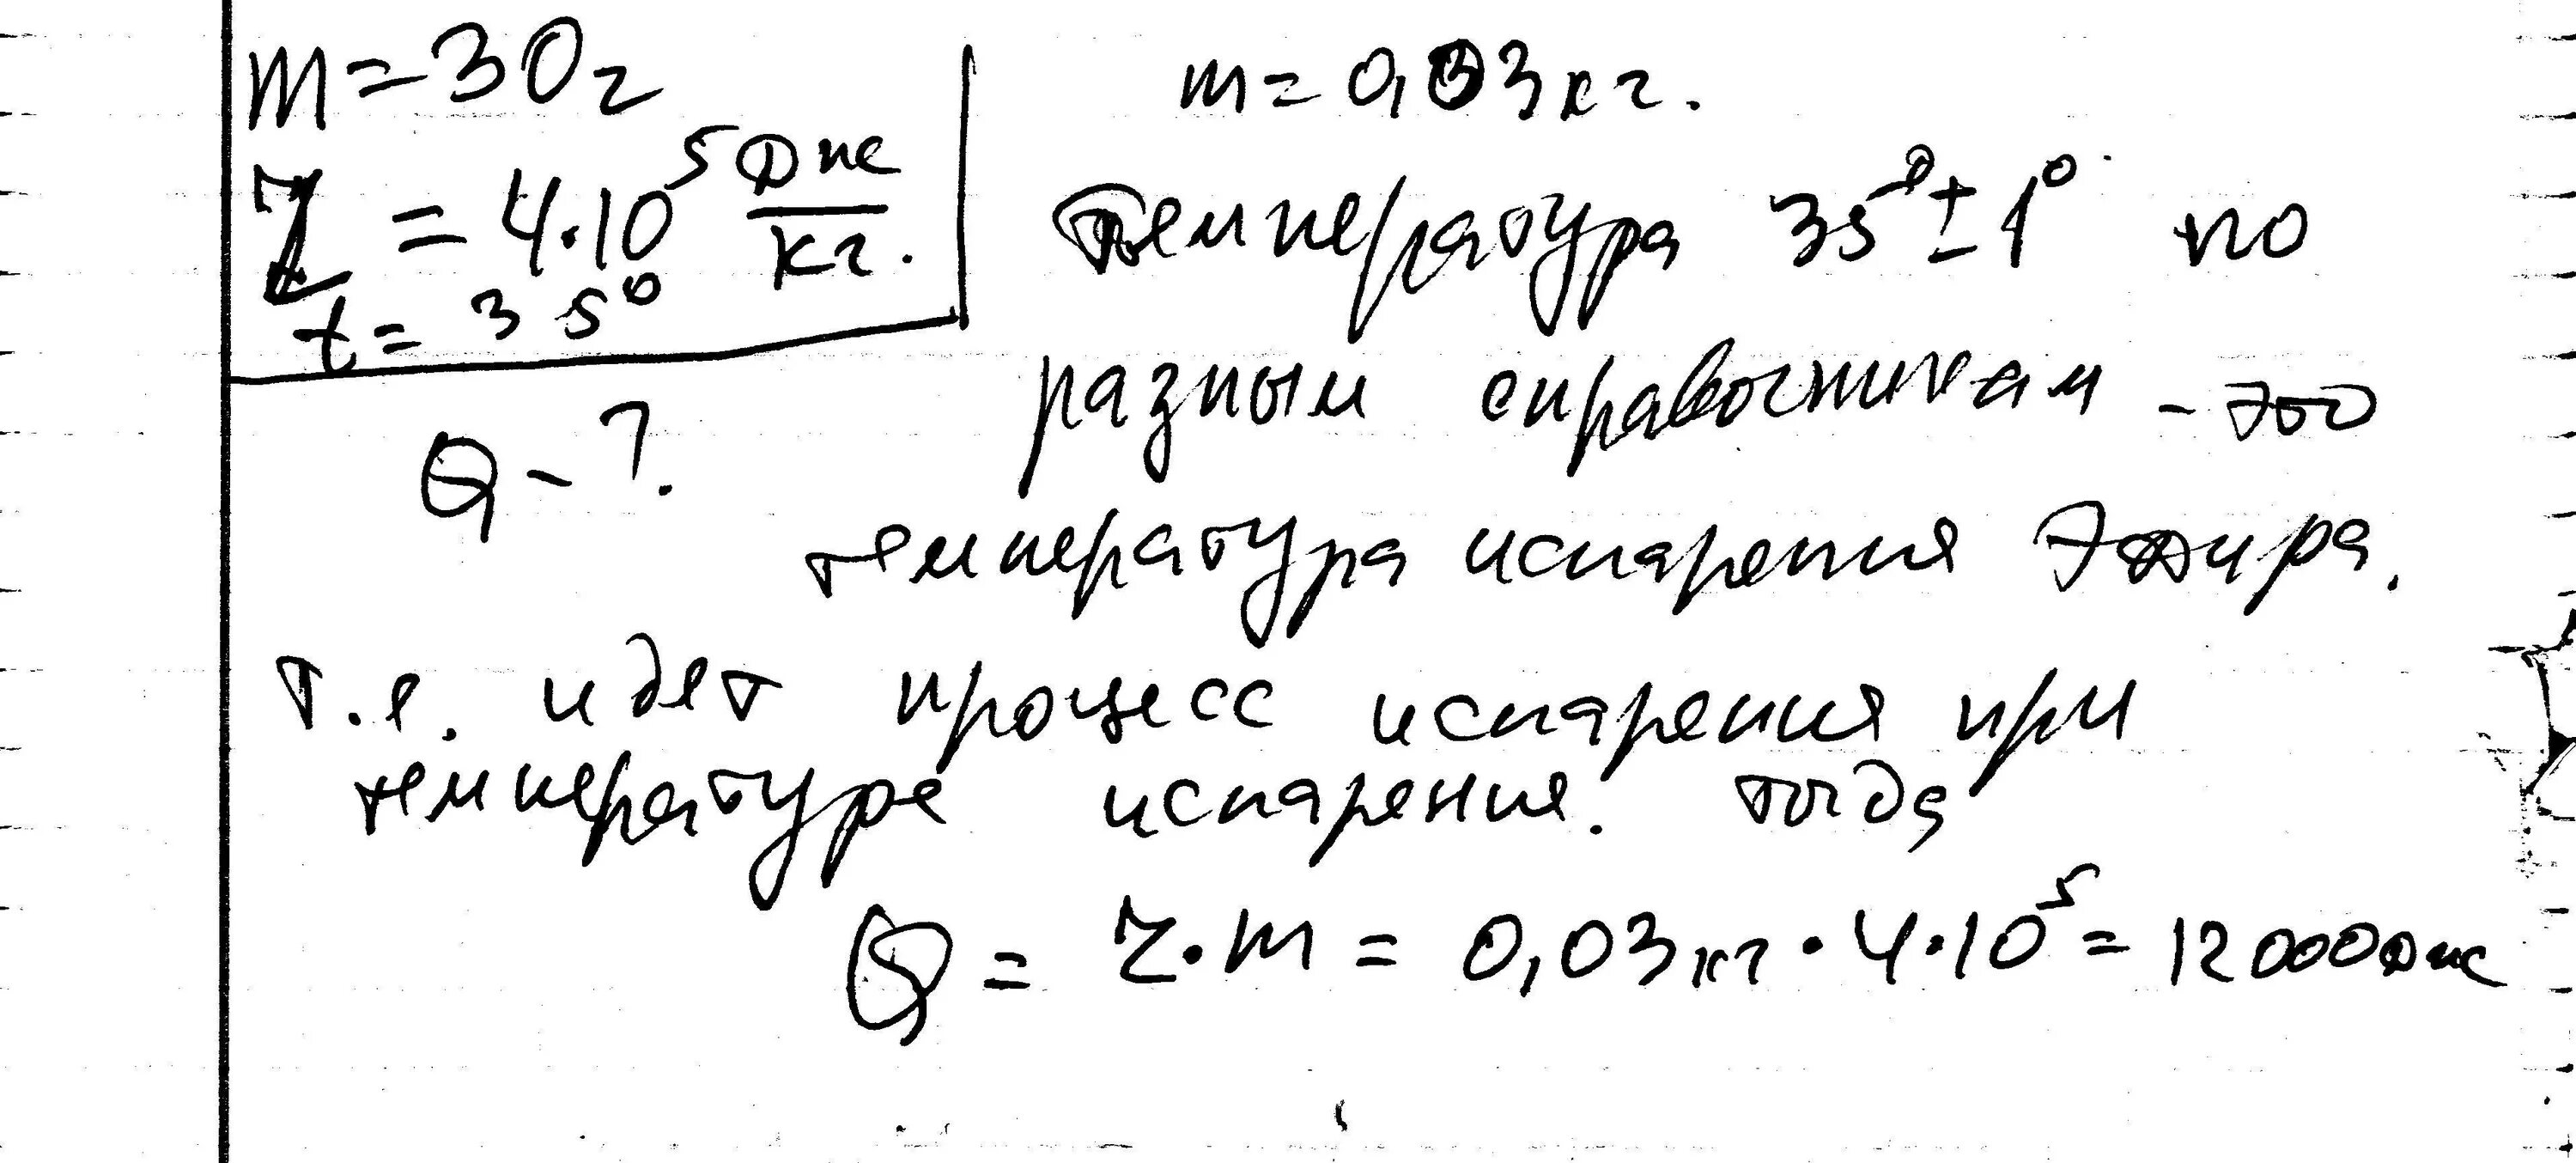 m = 30г
m = 0,03 кг.
L = 4·10⁵ Дж/кг.
t = 35°
температура 35° ± 1° по
разным справочникам - это
Q - ?
температура испарения эфира.
т.е. идет процесс испарения при
температуре испарения. тогда
Q = L·m = 0,03 кг · 4·10⁵ = 12000 Дж